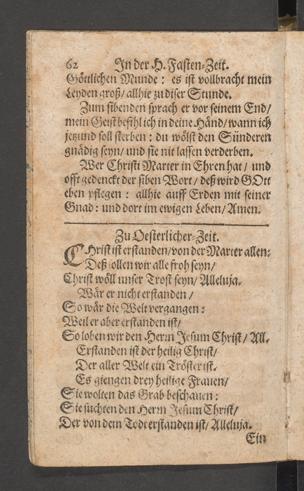 62 In der H. Fasten-Zeit.
Göttlichen Munde: es ist vollbracht mein
Leyden groß/ allhie zu diser Stunde.
Zum sibenden sprach er vor seinem End/
mein Geist befihl ich in deine Händ/ wann ich
jezund soll sterben: du wölst den Sünderen
gnädig seyn/ und sie nit lassen verderben.
Wer Christi Marter in Ehren hat/ und
offt gedenckt der siben Wort/ deß wird GOtt
eben pflegen: allhie auff Erden mit seiner
Gnad: und dort im ewigen Leben/ Amen.
Zu Oesterlicher-Zeit.
CHrist ist erstanden/ von der Marter allen:
Deß sollen wir alle froh seyn/
Christ wöll unser Trost seyn/ Alleluja.
Wär er nicht erstanden/
So wär die Welt vergangen:
Weil er aber erstanden ist/
So loben wir den Herrn Jesum Christ/ All.
Erstanden ist der heilig Christ/
Der aller Welt ein Tröster ist.
Es giengen drey heilige Frauen/
Sie wolten das Grab beschauen:
Sie suchten den Herrn Jesum Christ/
Der von dem Todt erstanden ist/ Alleluja.
Ein